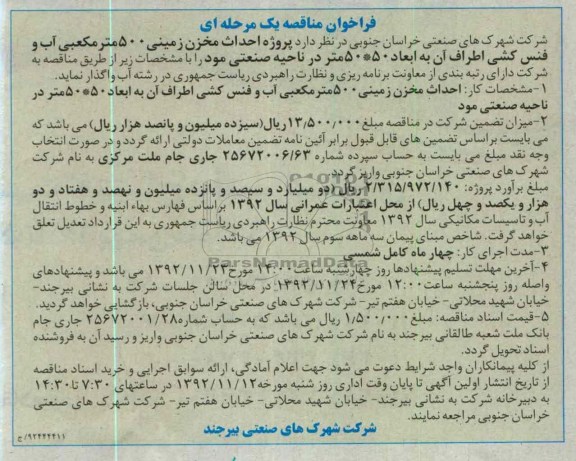 فراخوان مناقصه یک مرحله ای
شرکت شهرک های صنعتی خراسان جنوبی در نظر دارد پروژه احداث مخزن زمینی ۵۰۰ متر مکعبی آب و
فنس کشی اطراف آن به ابعاد ۵۰*۵۰ متر در ناحیه صنعتی مود را با مشخصات زیر از طریق مناقصه به
شرکت دارای رتبه بندی از معاونت برنامه ریزی و نظارت راهبردی ریاست جمهوری در رشته آب واگذار نماید.
۱-مشخصات کار: احداث مخزن زمینی ۵۰۰ متر مکعبی آب و فنس کشی اطراف آن به ابعاد ۵۰*۵۰ متر در
ناحیه صنعتی مود
۲-میزان تضمین شرکت در مناقصه مبلغ ۱۳/۵۰۰/۰۰۰ ریال (سیزده میلیون و پانصد هزار ریال) می باشد که
می بایست براساس تضمین های قابل قبول برابر آئین نامه تضمین معاملات دولتی ارائه گردد و در صورت انتخاب
وجه نقد مبلغ می بایست به حساب سپرده شماره ۲۵۶۷۲۰۰۶/۶۳ جاری جام ملت مرکزی به نام شرکت
شهرک های صنعتی خراسان جنوبی واریز گردد.
مبلغ برآورد پروژه: ۲/۳۱۵/۹۷۲/۱۴۰ ریال (دو میلیارد و سیصد و پانزده میلیون و نهصد و هفتاد و دو
هزار و یکصد و چهل ریال) از محل اعتبارات عمرانی سال ۱۳۹۲ براساس فهارس بهاء ابنیه و خطوط انتقال
آب و تاسیسات مکانیکی سال ۱۳۹۲ معاونت محترم نظارت راهبردی ریاست جمهوری به این قرارداد تعدیل تعلق
خواهد گرفت. شاخص مبنای پیمان سه ماهه سوم سال ۱۳۹۲ می باشد.
۳-مدت اجرای کار: چهار ماه کامل شمسی
۴-آخرین مهلت تسلیم پیشنهادها روز چهارشنبه ساعت ۱۴:۰۰ مورخ ۱۳۹۲/۱۱/۲۳ می باشد و پیشنهادهای
واصله روز پنجشنبه ساعت ۱۲:۰۰ مورخ ۱۳۹۲/۱۱/۲۴ در محل سالن جلسات شرکت به نشانی بیرجند-
خیابان شهید محلاتی- خیابان هفتم تیر- شرکت شهرک های صنعتی خراسان جنوبی، بازگشایی خواهد گردید.
۵-قیمت اسناد مناقصه: مبلغ ۱/۵۰۰/۰۰۰ ریال می باشد که به حساب شماره ۲۵۶۷۲۰۰۱/۲۸ جاری جام
بانک ملت شعبه طالقانی بیرجند به نام شرکت شهرک های صنعتی خراسان جنوبی واریز و رسید آن به فروشنده
اسناد تحویل گردد.
از کلیه پیمانکاران واجد شرایط دعوت می شود جهت اعلام آمادگی، ارائه سوابق اجرایی و خرید اسناد مناقصه
از تاریخ انتشار اولین آگهی تا پایان وقت اداری روز شنبه مورخه ۱۳۹۲/۱۱/۱۲ در ساعتهای ۷:۳۰ تا ۱۴:۳۰
به دبیرخانه شرکت به نشانی بیرجند- خیابان شهید محلاتی- خیابان هفتم تیر- شرکت شهرک های صنعتی
خراسان جنوبی مراجعه نمایند.
شرکت شهرک های صنعتی بیرجند
۹۲۲۴۴۴۱۱/ج
ParsNamadData